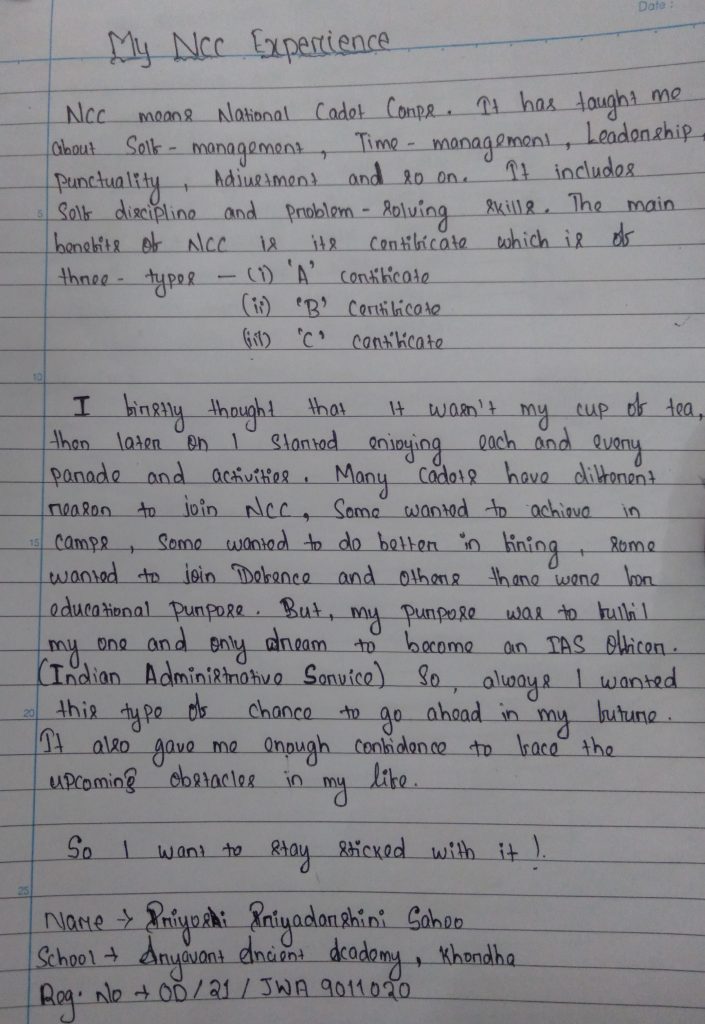 Date :
My Ncc Experience
NCC means National Cadet Corps. It has taught me
about Self-management, Time-management, Leadership,
punctuality, Adjustment and so on. It includes
5 Self discipline and problem-solving skills. The main
benefits of NCC is its certificate which is of
three-types - (i) 'A' certificate
(ii) 'B' Certificate
(iii) 'C' certificate
10
I firstly thought that it wasn't my cup of tea,
then later on I started enjoying each and every
parade and activities. Many cadets have different
reason to join NCC, Some wanted to achieve in
15 camps, some wanted to do better in firing, some
wanted to join Defence and others there were for
educational purpose. But, my purpose was to fulfil
my one and only dream to become an IAS Officer.
(Indian Administrative Service) So, always I wanted
20 this type of chance to go ahead in my future.
It also gave me enough confidence to face the
upcoming obstacles in my life.
So I want to stay sticked with it !
25
Name → Priyadarshini Sahoo
School → Aryavart Ancient Academy, Khordha
Reg. No → OD/21/JWA 9011020